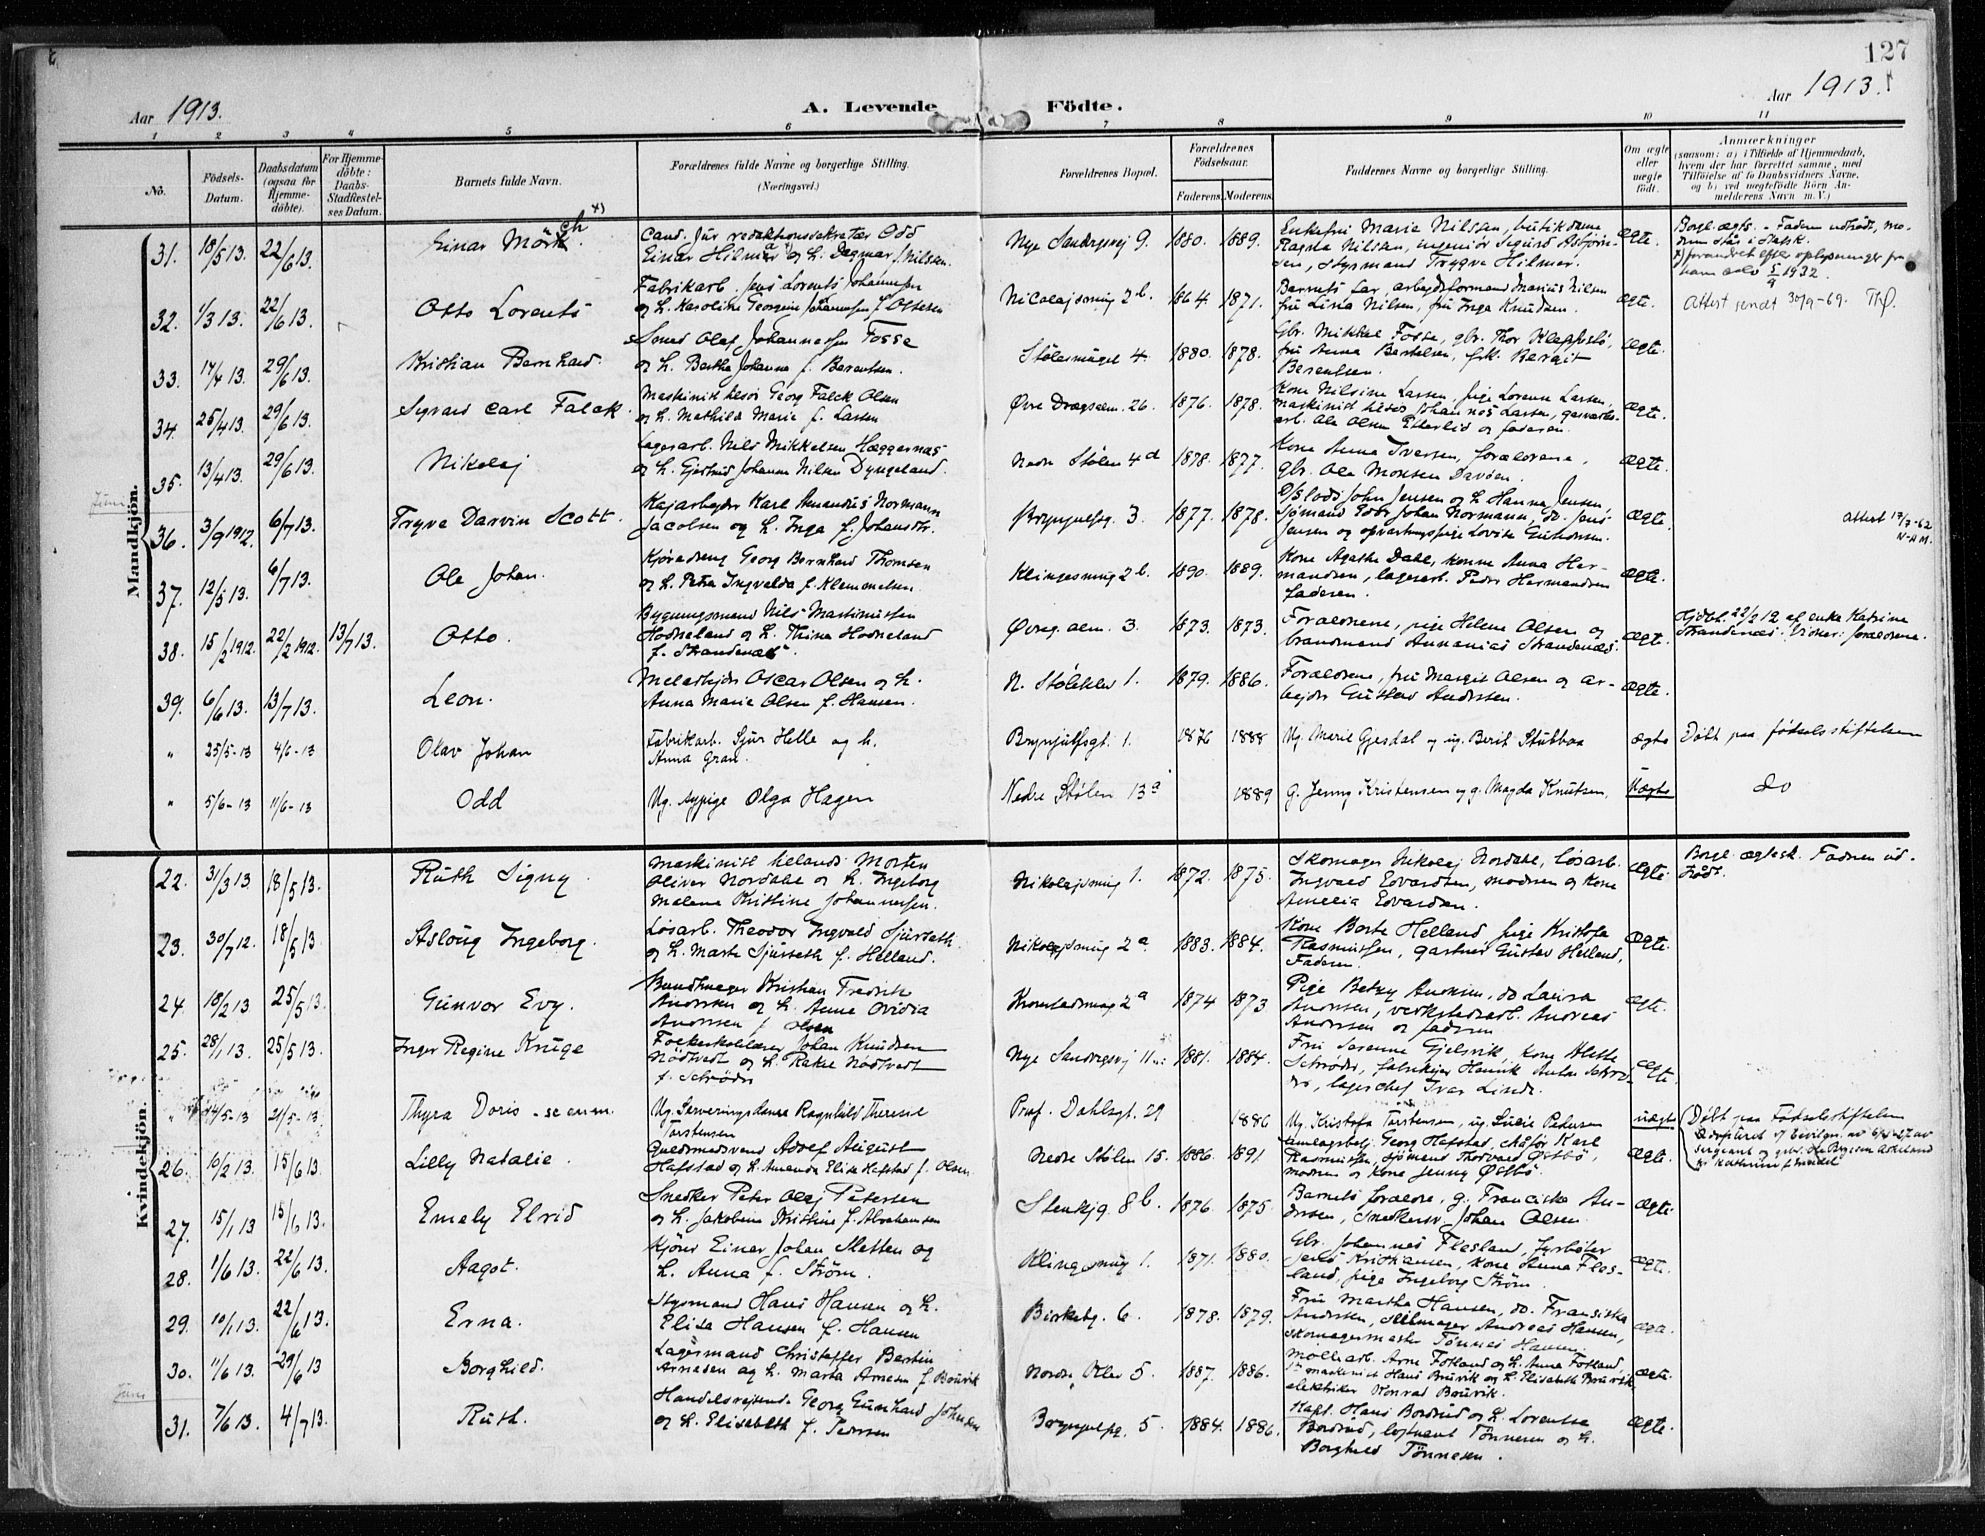 127
Aar 1913.
A. Levende Födte.
Aar 1913.
1 2 3 4 5 6 7 8 9 10 11
No.
Födsels-Datum.
Daabsdatum (ogsaa for Hjemme-döbte).
For Hjemme-döbte: Daabs-Stadfæstel-ses Datum.
Barnets fulde Navn.
Forældrenes fulde Navne og borgerlige Stilling. (Næringsvei.)
Forældrenes Bopæl.
Forældrenes Födselsaar.
Faderens. Moderens.
Faddernes Navne og borgerlige Stilling.
Om ægte eller uægte födt.
Anmerkninger (saasom: a) i Tilfælde af Hjemmedaab, hvem der har forrettet samme, med Tilföielse af to Daabsvidners Navne, og b) ved uægtefödte Börn Anmelderens Navn m. V.)
Mandkjön.
31. 18/5 13. 22/6 13. Einar Mörch x)
Cand. jur redaktionssekretær Odd
Einar Hilmar og h. Dagmar f. Nilsen.
Nye Sandvigsvej 9. 1880. 1889.
Enkefru Marie Nilsen, butikdame
Ragna Nilsen, ingeniør Sigurd Asbjørnsen, Styrmand Trygve Hilmar.
ægte.
Borgl. ægts. - Faderen udtraadt, moderen står i Statsk.
x) forandret efter oplysninger fra ham selv 5/9 1932.
32. 1/3 13. 22/6 13. Otto Lorents
Fabrikarb. Jens Lorents Johannesen
og h. Karoline Georgine Johannesen f. Ottesen
Nicolajsmug 2b. 1864. 1871.
Barnets far, arbejdsformand Marius Nilsen
fru Lina Nilsen, fru Inga Knudsen.
ægte.
Attest sendt 30/9-69.
33. 17/4 13. 29/6 13. Kristian Bernhard.
Smed Olaf Johannessen Fosse
og h. Bertha Johanna f. Berentsen.
Stølesmuget 4. 1880. 1878.
Gbr. Mikkel Fosse, gbr. Thor Kleppestö,
fru Anna Bertelsen, frk. Bergit
Berentsen.
ægte.
34. 25/4 13. 29/6 13. Sigvard Carl Falck.
Maskinist tilsøs Georg Falck Olsen
og h. Mathilda Marie f. Larsen
Øvre Dragsalm. 26. 1876. 1878.
Kone Nilsine Larsen, pige Lorense Larsen,
maskinist tilsøs Johannes Larsen, gasværksarb. Ole Olsen Etterlid og faderen.
ægte.
35. 13/4 13. 29/6 13. Nikolaj
Lagerarb. Nils Mikkelsen Hæggernæs
og h. Gjertrud Johanna Nilsen Dyngeland.
Nedre Stølen 4d 1878. 1877.
Kone Anna Iversen, forældrene,
gbr. Ole Monsen Davøen.
ægte.
Juni
36. 3/9 1912. 6/7 13. Trygve Darvin Scott.
Kajarbejder Karl Amandus Normann
Jacobsen og h. Inga f. Johansdtr.
Brynjulfsg. 3. 1877. 1878.
D/S lods John Jensen og h. Hanna Jensen,
Sjømand Edv. Johan Normann, do. Jens
Jensen og opvartningspige Lovise Gundersen.
ægte.
Attest 17/7-62
N-HM.
37. 12/5 13. 6/7 13. Ole Johan.
Kjøredreng Georg Bernhard Thomsen
og h. Petra Ingvalda f. Klemmetsen.
Klingesmug 2b. 1890. 1889.
Kone Agathe Dahl, konne Anna Hermandsen, lagerarb. Peder Hermandsen
faderen.
ægte.
38. 15/2 1912. 22/2 1912. 13/7 13. Otto.
Bygningsmand Nils Martinussen
Hodneland og h. Thina Hodneland
f. Strandenæs.
Øvreg. alm. 3. 1873. 1873.
Forældrene, pige Helene Olsen og
brandmand Annanias Strandenæs.
ægte.
Hjdbt. 22/2 12 af enke Katrine
Strandenæs. Vidner: forældrene.
39. 6/6 13. 13/7 13. Leon.
Metalarbejder Oscar Olsen og h.
Anna Marie Olsen f. Hansen.
N. Støleklev 1. 1879. 1886.
Forældrene, fru Margit Olsen og arbejder Gustav Andersen.
ægte.
" 25/5-13 4/6-13 Olav Johan
Fabrikarb. Sjur Helle og h.
Anna Gran.
Brynjulfsgt. 1. 1876 1888
Ug. Marie Gjesdal og ug. Berit Stubhaa
ægte
Døbt paa fødselsstiftelsen
" 5/6-13 11/6-13 Odd
Ug. sypige Olga Hagen
Nedre Stølen 13a 1889
g. Jenny Kristensen og g. Magda Knutsen.
Uægte
do
Kvindekjön.
22. 31/3 13. 18/5 13. Ruth Signy.
Maskinist tillands Morten
Oliver Nordahl og h. Ingeborg
Malene Kristine Johannessen.
Nikolajsmug 1. 1872. 1875.
Skomager Nikolaj Nordahl, løsarb.
Ingvald Edvardsen, moderen og kone
Amelia Edvardsen.
ægte.
Borgl. ægtesk. Faderen udtraadt.
23. 30/7 12. 18/5 13. Aslaug Ingeborg.
Løsarb. Theodor Ingvald Sjurseth
og h. Marta Sjurseth f. Helland.
Nikolajsmug 2a. 1883. 1884.
Kone Berte Helland, pige Kristofa
Rasmussen, gartner Gustav Helland,
Faderen.
ægte.
24. 18/2 13. 25/5 13. Gunvor Evy.
Bundtmager Kristian Fredrik
Andersen og h. Anna Ovidia
Andersen f. Olsen
2a 1874 1873
Pige Betzy Andersen, do Laura
Andersen, verkstedsarb. Andreas
Andersen og faderen.
ægte.
25. 28/1 13. 25/5 13. Inger Regine Krüge
Folkeskolelærer Johan Knudsen
Nödtvedt og h. Rakel Nödtvedt
f. Schrøder
Nye Sandvigsvej 11 1881. 1884.
Fru Susanne Gjelsvik, kone Alette
Schrøder, fabrikejer Henrik Anton Schrøder, lagerchef Ivar Linde.
ægte.
" 14/5-13 21/5-13 Thyra Doris - se anm.
Ug. Serveringsdame Ragnhild Therese
Torstensen
Prof. Dahlsgt. 29 1886
Ug. Kristofa Torstensen, ug. Lucie Pedersen
uægte
Døbt paa Fødselsstiftelsen
Adopteret
26. 10/2 13. 15/6 13. Lilly Natalie.
Guldsmedsvend Adolf August
Hafstad og h. Amanda Elise Hafstad f. Olsen
Nedre Stølen 15. 1886. 1891
Anlægsbest. Georg Hafstad, Karl
Rasmussen, sjømand Thorvald Østbö,
moderen og kone Jenny Østbö.
ægte.
27. 15/1 13 15/6 13. Emely Elvid
Snedker Peter Olaj Petersen
og h. Jakobine Kristine f. Abrahamsen
Stenkjg. 8b. 1876. 1875.
Barnets forældre, g. Franciska Andersen, Snedkersv. Johan Olsen.
ægte.
28. 1/6 13. 22/6 13. Aagot.
Kjører Einar Johan Sletten og
h. Anna f. Strøm.
Klingesmug 1. 1871. 1880.
Gbr. Johannes Flesland, fyrbøter
Jens Kristiansen, kone Anna Flesland, pige Ingeborg Strøm.
ægte.
29. 10/1 13. 22/6 13. Erna.
Styrmand Hans Hansen og h.
Elisa Hansen f. Hansen
Birkebg. 6. 1878. 1879.
Fru Martha Hansen, do. Fransiska
Andersen, Seilmager Andreas Hansen,
skomagermester Tönnes Hansen
ægte.
30. 11/6 13. 29/6 13 Borghild.
Lagermand Christoffer Bertin
Arnesen og h. Marta Arnesen f. Brüvik
Nordre Kleb 5. 1887. 1886.
Møllearb. Arne Fotland og h. Anna Fotland,
1ste maskinist Hans Brüvik og h. Elisabeth Brüvik,
elektriker Konrad Brüvik.
ægte.
Juni
31. 7/6 13. 4/7 13. Ruth.
Handelsrejsend. Georg Gunhard Johnsen
og h. Elisabeth f. Iversen
Brynjulfsg. 5. 1884. 1886.
Kapt. Hans Bordrud og h. Lorentse
Bordrud, løjtnant Tönnesen og h.
Borghild Tönnesen.
ægte.